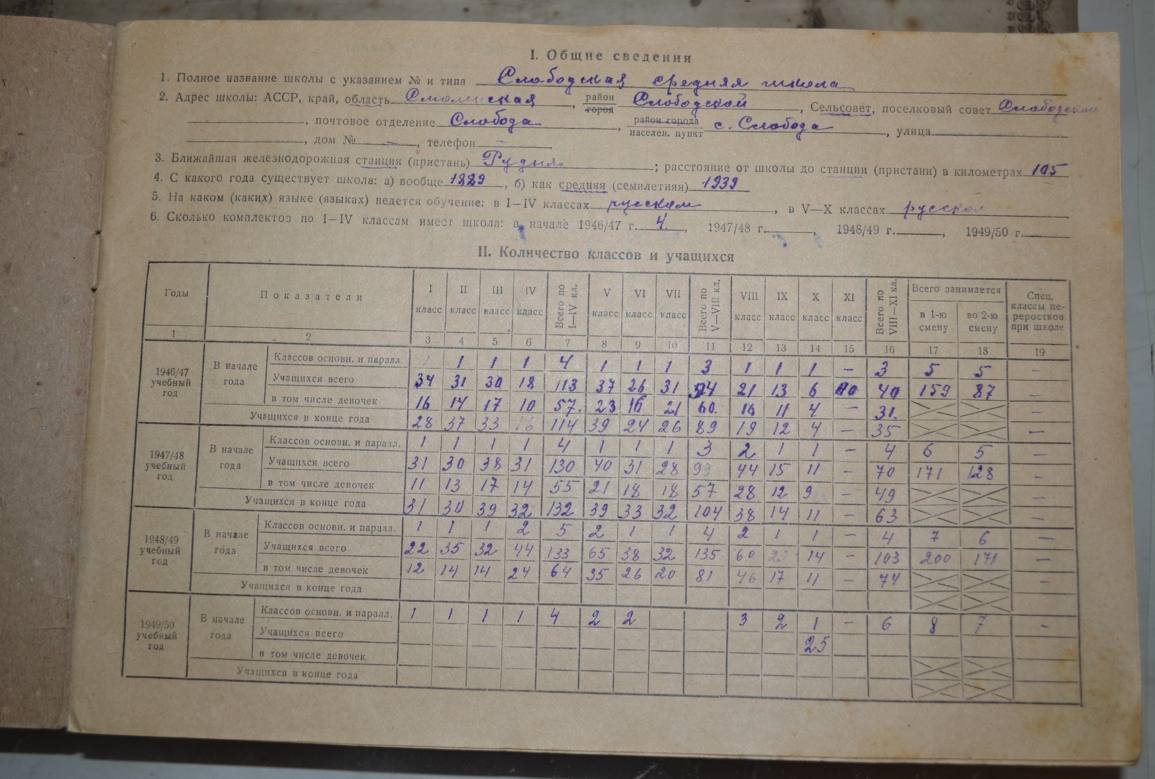 I. Общие сведения
1. Полное название школы с указанием № и типа Слободская средняя школа
2. Адрес школы: АССР, край, область Смоленская, район город Слободской, Сельсовет, поселковый совет Слободской
, почтовое отделение Слобода, район города населен. пункт с. Слобода, улица
, дом № —, телефон —
3. Ближайшая железнодорожная станция (пристань) Рудня; расстояние от школы до станции (пристани) в километрах 105
4. С какого года существует школа: а) вообще 1889, б) как средняя (семилетняя) 1939
5. На каком (каких) языке (языках) ведется обучение: в I—IV классах русском, в V—X классах русском
6. Сколько комплектов по I—IV классам имеет школа: в начале 1946/47 г. 4, 1947/48 г. , 1948/49 г. , 1949/50 г.
II. Количество классов и учащихся
Годы Показатели I класс II класс III класс IV класс Всего по I—IV кл. V класс VI класс VII класс Всего по V—VIII кл. VIII класс IX класс X класс XI класс Всего по VIII—XI кл. Всего занимается в 1-ю смену во 2-ю смену Спец. классы переростков при школе
1 2 3 4 5 6 7 8 9 10 11 12 13 14 15 16 17 18 19
1946/47 учебный год
В начале года
Классов основн. и паралл. 1 1 1 4 1 1 1 3 1 1 1 — 3 5 5 —
Учащихся всего 34 31 30 18 113 37 26 31 94 21 13 6 40 159 87 —
в том числе девочек 16 14 17 10 57. 23 16 21 60. 16 11 4 — 31. —
Учащихся в конце года 28 37 33 16 114 39 24 26 89 19 12 4 — 35 —
1947/48 учебный год
В начале года
Классов основн. и паралл. 1 1 1 1 4 1 1 1 3 2 1 1 — 4 6 5 —
Учащихся всего 31 30 38 31 130 40 31 28 99 44 15 11 — 70 171 128 —
в том числе девочек 11 13 17 14 55 21 18 18 57 28 12 9 — 49 —
Учащихся в конце года 31 30 39 32 132 39 33 32 104 38 14 11 — 63 —
1948/49 учебный год
В начале года
Классов основн. и паралл. 1 1 1 2 5 2 1 1 4 2 1 1 — 4 7 6 —
Учащихся всего 22 35 32 44 133 65 38 32 135 60 14 — 103 200 171 —
в том числе девочек 12 14 14 24 64 35 26 20 81 46 17 11 — 74 —
Учащихся в конце года
1949/50 учебный год
В начале года
Классов основн. и паралл. 1 1 1 1 4 2 2 3 2 1 — 6 8 7 —
Учащихся всего 25
в том числе девочек
Учащихся в конце года